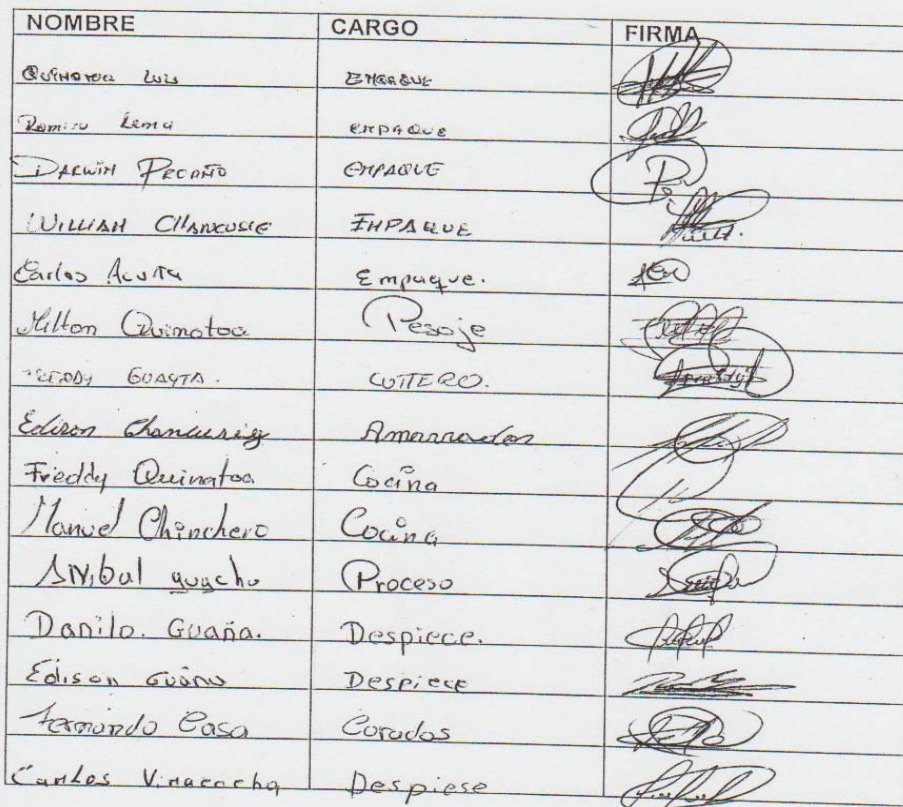 NOMBRE CARGO FIRMA
Quinatoa Luis EMPAQUE
Ramiro Lema EMPAQUE
DARWIN EMPAQUE
WILLIAM CHANCUSIG EMPAQUE
Carlos Acurta Empaque.
Milton Quinatoa Pesaje
FREDDY GUAYTA. CUTTERO.
Edison Chancusig Amarrador
Freddy Quinatoa Cocina
Manuel Chinchero Cocina
ANibal guacho Proceso
Danilo. Guaña. Despiece.
Edison Guaña Despiece
Fernando Casa Curados
Carlos Viracocha Despiese